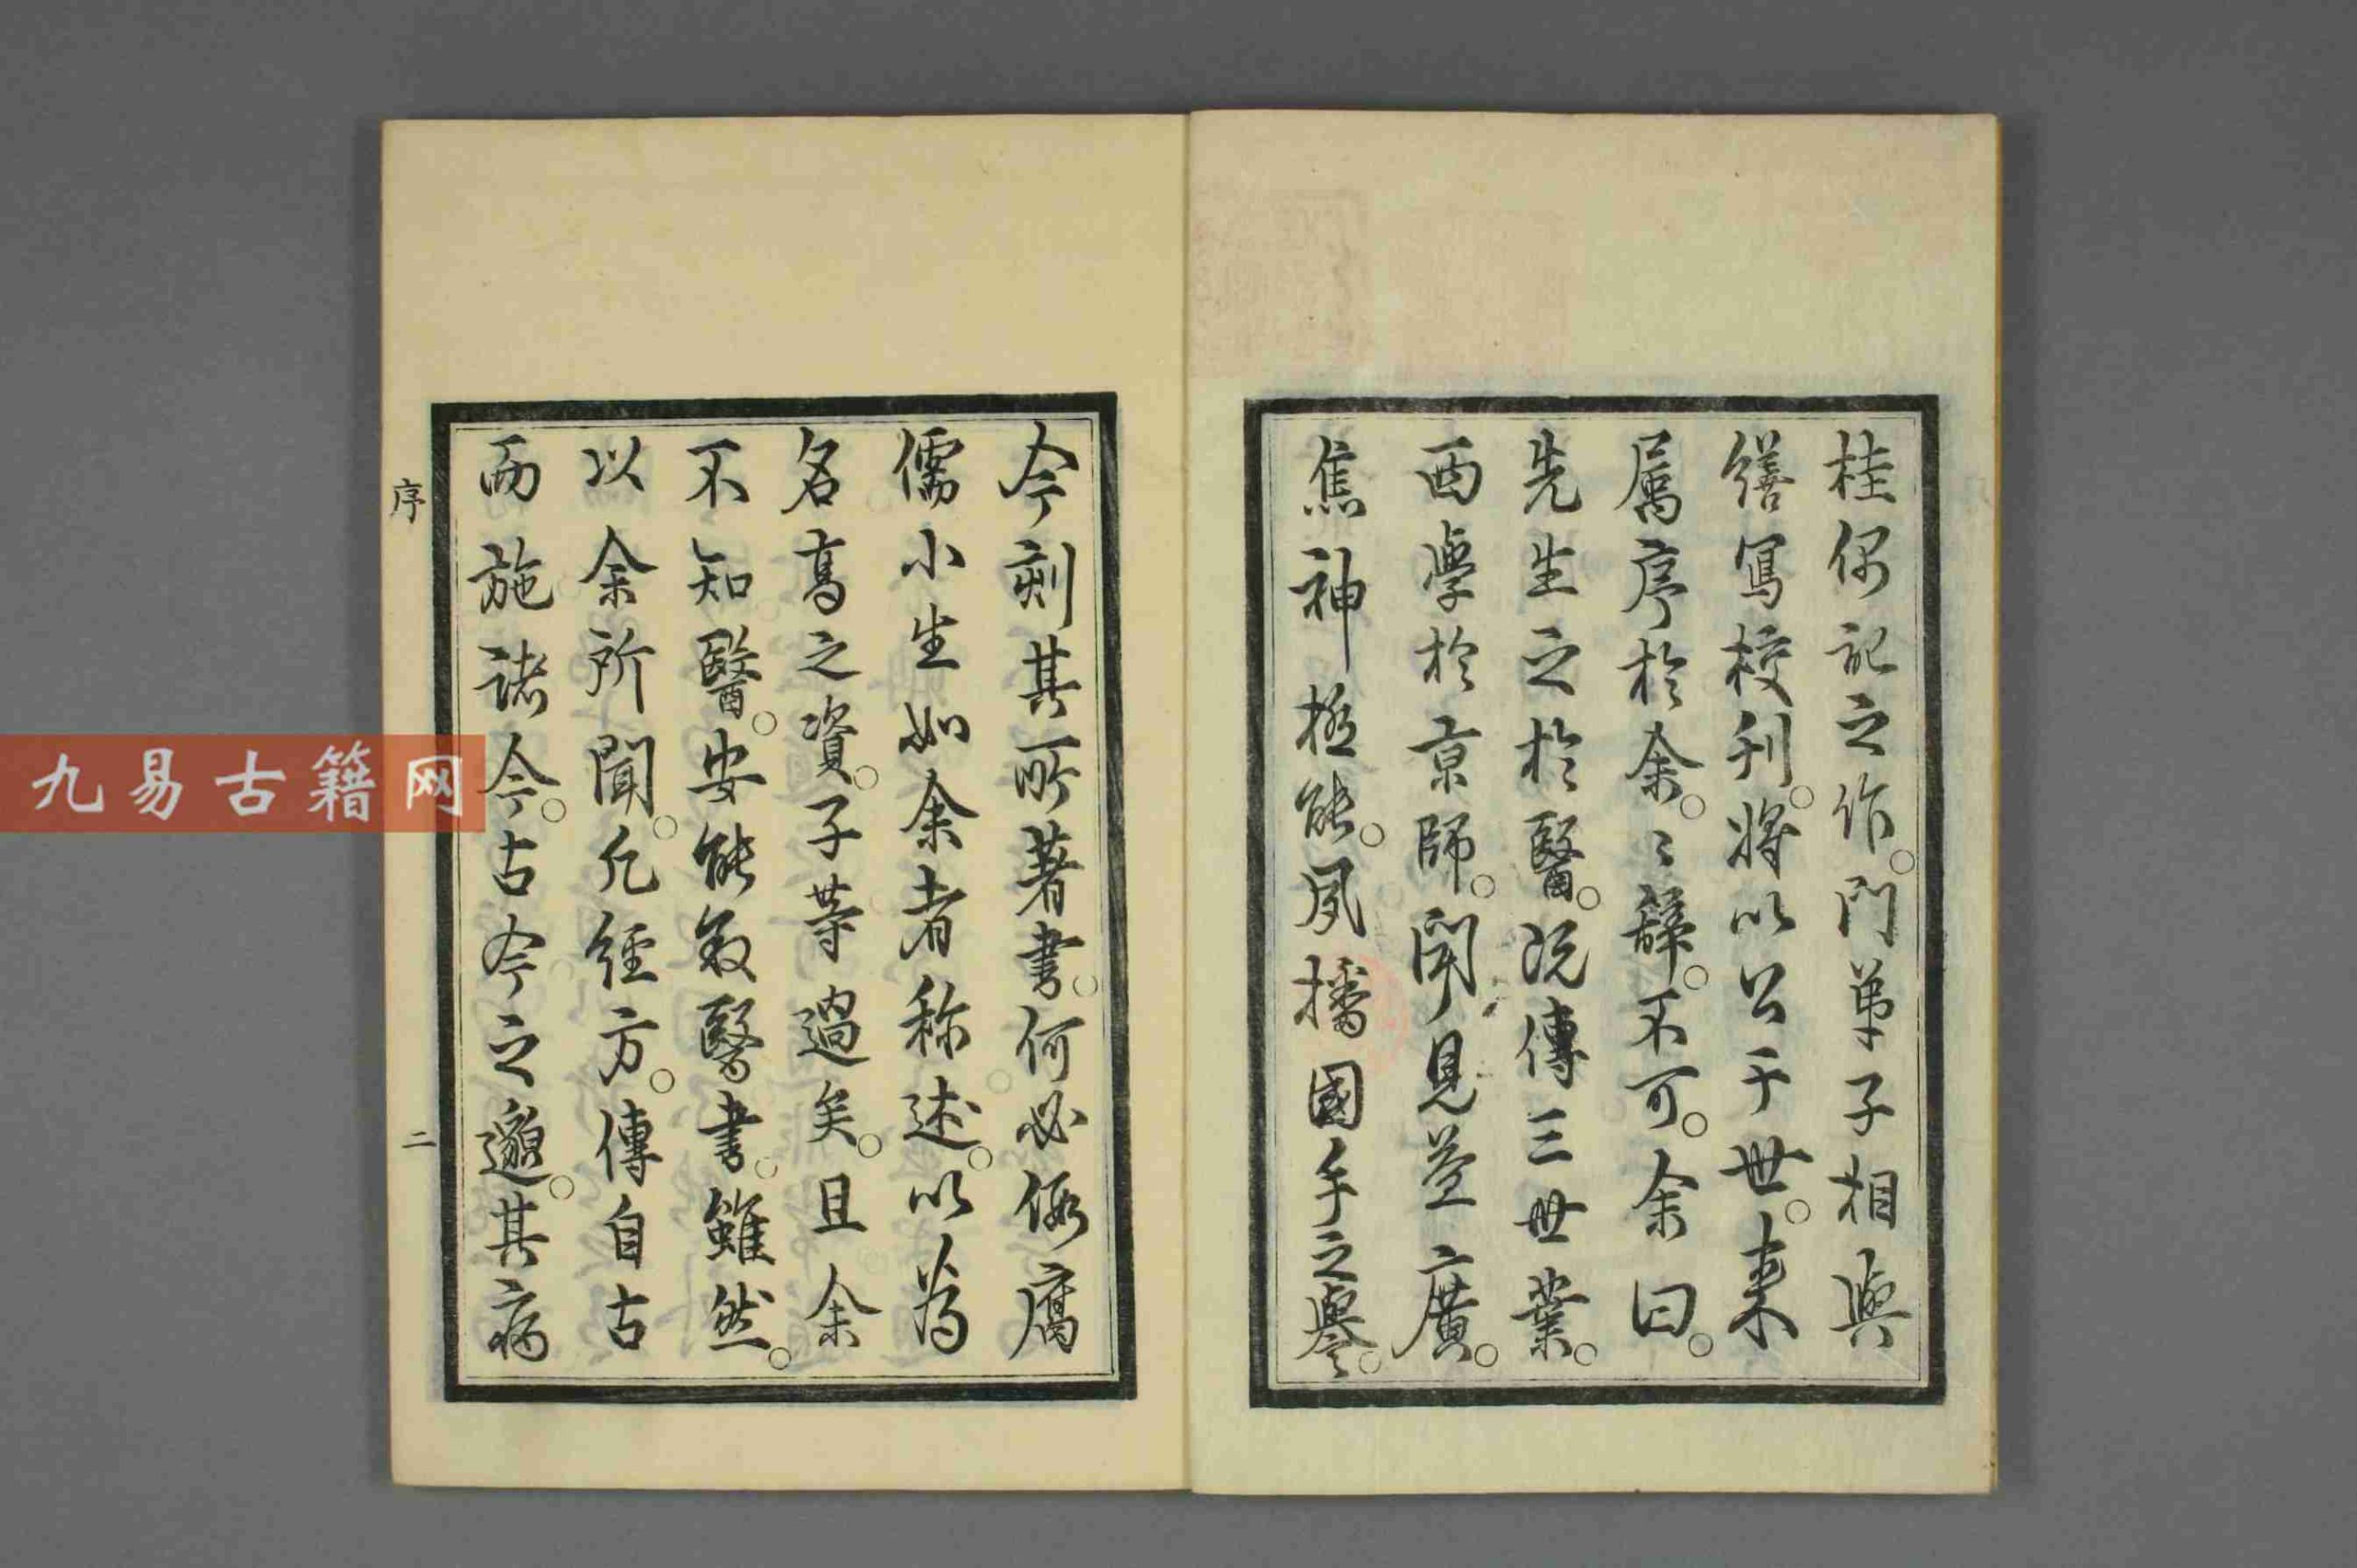 桂偶記之作。門弟子相與
繕寫校刊。將以公于世。來
屬序於余。〻辭。不可。余曰。
先生之於醫。況傳三世業。
西學於京師。聞見益廣。
焦神極能。夙播國手之譽。
今刻其所著書。何必假腐
儒小生如余者称述。以為
名高之資。子等過矣。且余
不知醫。安能敘醫書。雖然。
以余所聞。凡經方。傳自古
而施諸今。古今之邈。其病
序
二
九易古籍网